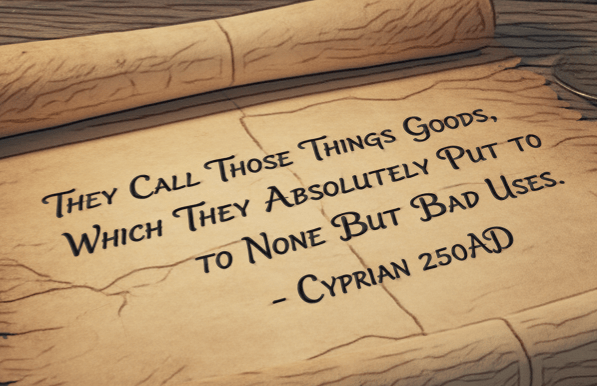 They Call Those Things Goods,
Which They Absolutely Put to
to None But Bad Uses.
- Cyprian 250AD